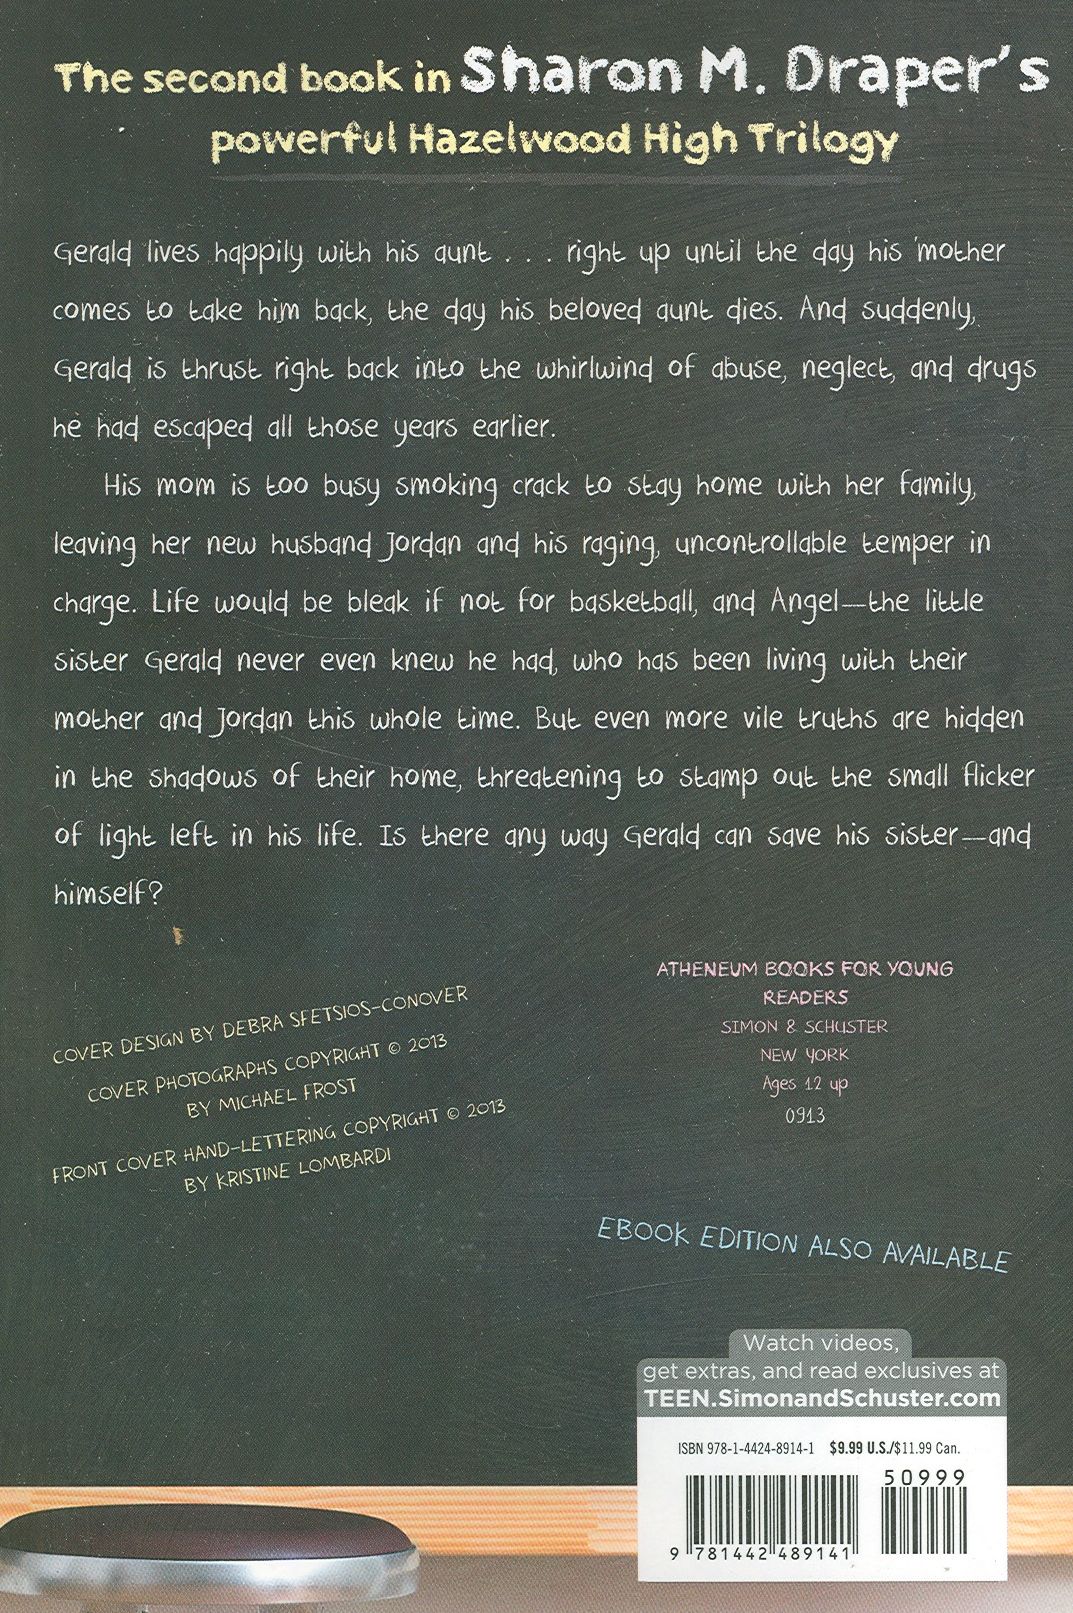 The second book in Sharon M. Draper's
powerful Hazelwood High Trilogy
Gerald lives happily with his aunt . . . right up until the day his mother
comes to take him back, the day his beloved aunt dies. And suddenly,
Gerald is thrust right back into the whirlwind of abuse, neglect, and drugs
he had escaped all those years earlier.
His mom is too busy smoking crack to stay home with her family,
leaving her new husband Jordan and his raging, uncontrollable temper in
charge. Life would be bleak if not for basketball, and Angel—the little
sister Gerald never even knew he had, who has been living with their
mother and Jordan this whole time. But even more vile truths are hidden
in the shadows of their home, threatening to stamp out the small flicker
of light left in his life. Is there any way Gerald can save his sister—and
himself?
COVER DESIGN BY DEBRA SFETSIOS-CONOVER
COVER PHOTOGRAPHS COPYRIGHT © 2013
BY MICHAEL FROST
FRONT COVER HAND-LETTERING COPYRIGHT © 2013
BY KRISTINE LOMBARDI
ATHENEUM BOOKS FOR YOUNG
READERS
SIMON & SCHUSTER
NEW YORK
Ages 12 up
0913
EBOOK EDITION ALSO AVAILABLE
Watch videos,
get extras, and read exclusives at
TEEN.SimonandSchuster.com
ISBN 978-1-4424-8914-1 $9.99 U.S./$11.99 Can.
50999
9 781442 489141